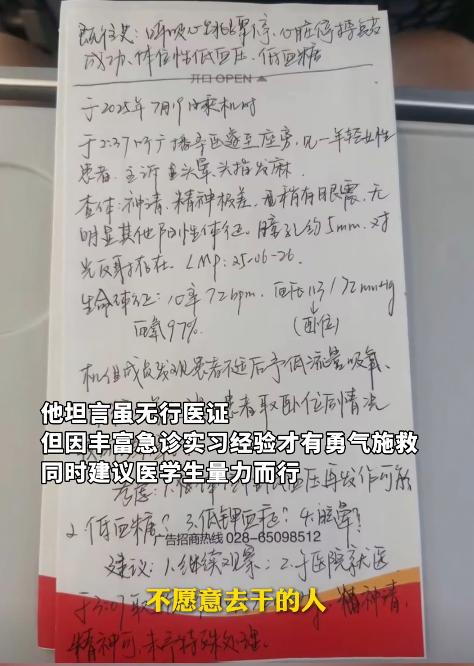 既往史：呼吸心跳骤停、心脏停搏复苏
成功、体位性低血压、低血糖
开口 OPEN
于2025年7月19日乘机时
于2:37听广播寻医遂至座旁，见一年轻女性
患者，主诉头晕头指发麻
查体：神清，精神极差，稍有眼震，无
明显其他阳性体征。瞳孔约5mm，对
光反射存在。LMP：25-06-26.
生命体征：心率72bpm．血压113/72mmHg
血氧97%　(卧位)
机组成员发现患者不适后予低流量吸氧、
患者取卧位后情况
他坦言虽无行医证
但因丰富急诊实习经验才有勇气施救
同时建议医学生量力而行
压再发作可能
2.低血糖？3.低钾血症？4.脑晕？
广告招商热线 028-65098512
建议：1.继续观察；2.于医院就医
不愿意去干的人
于3:07 精神清，
精神可，未予特殊处理。